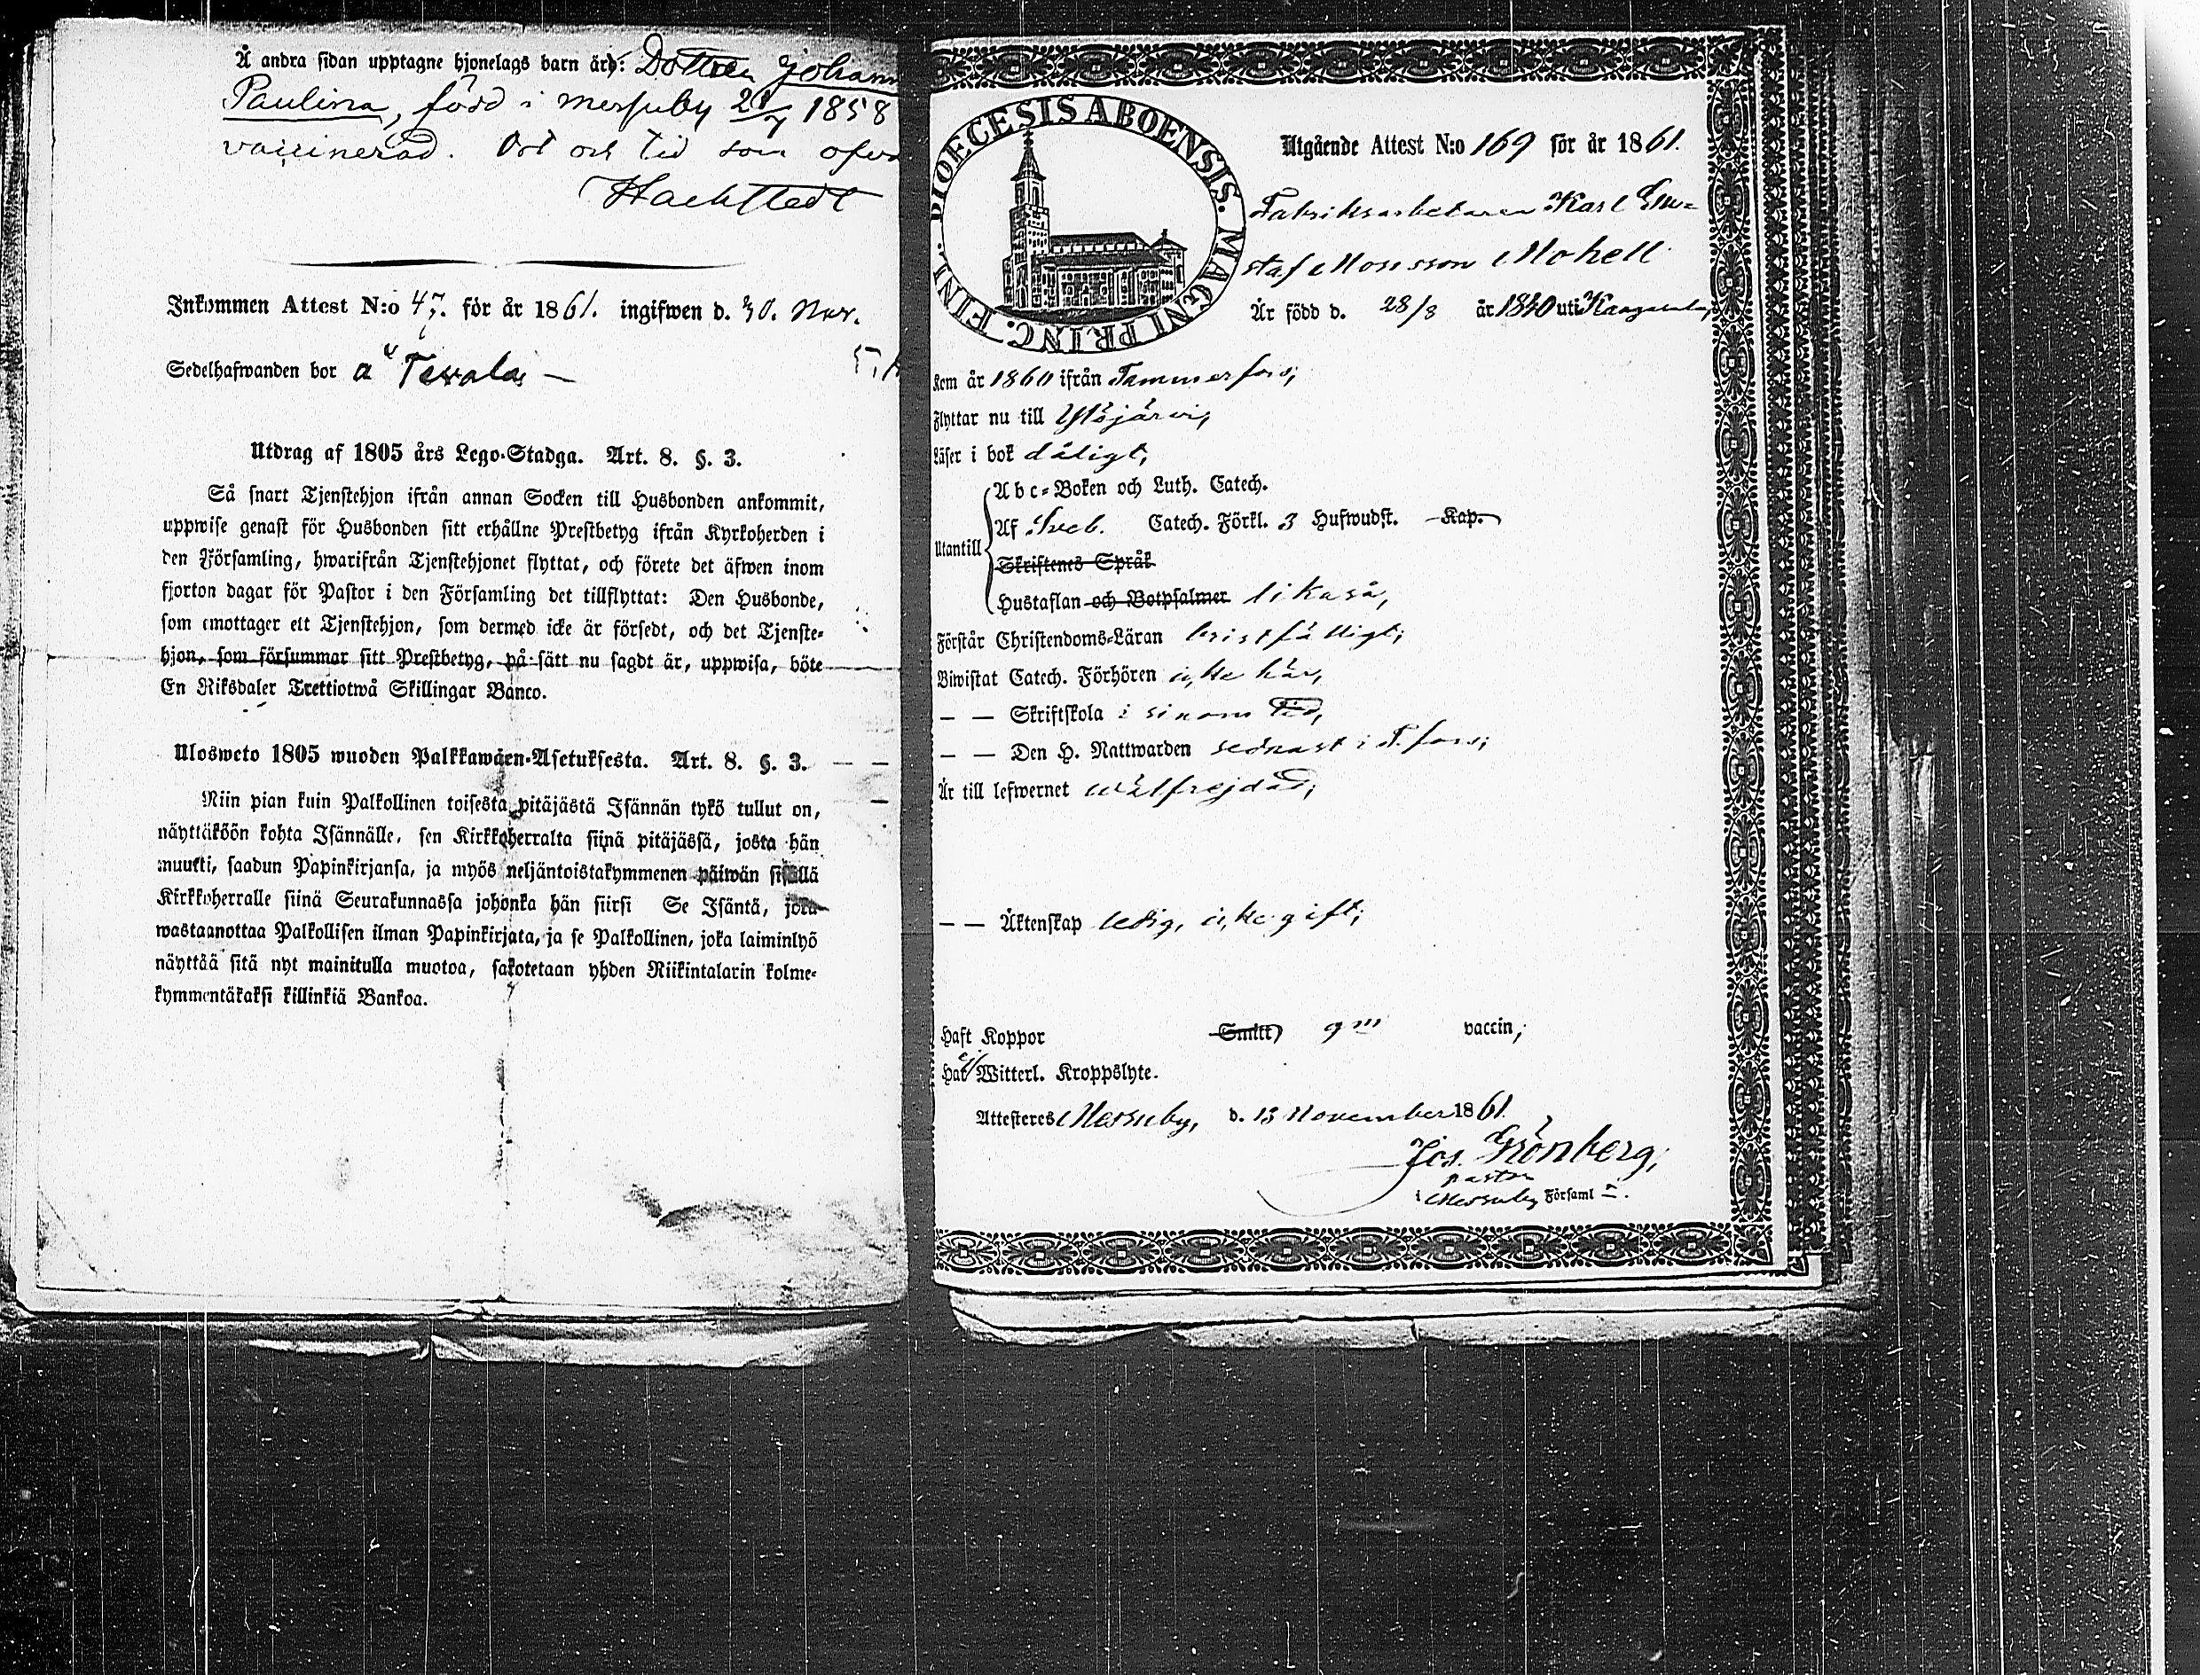 Å andra sidan upptagne hjonelags barn är: Dottren Johann
Paulina, född i Messuby 21/7 1858
vaccinerad. Ort och tid som ofvan
Hackstedt
Inkommen Attest N:o 47. för år 1861. ingifwen d. 30. Nov.
Sedelhafwanden bor å Terala
Utdrag af 1805 års Lego-Stadga. Art. 8. §. 3.
Så snart Tjenstehjon ifrån annan Socken till Husbonden ankommit,
uppwise genast för Husbonden sitt erhållne Prestbetyg ifrån Kyrkoherden i
den Församling, hwarifrån Tjenstehjonet flyttat, och förete det äfwen inom
fjorton dagar för Pastor i den Församling det tillflyttat: Den Husbonde,
som emottager ett Tjenstehjon, som dermed icke är försedt, och det Tjenste-
hjon, som försummar sitt Prestbetyg, på sätt nu sagdt är, uppwisa, böte
En Riksdaler Trettiotwå Skillingar Banco.
Ulosweto 1805 wuoden Palkkawäen-Asetuksesta. Art. 8. §. 3.
Niin pian kuin Palkollinen toisesta pitäjästä Isännän tykö tullut on,
näyttäköön kohta Isännälle, sen Kirkkoherralta siinä pitäjässä, josta hän
muutti, saadun Papinkirjansa, ja myös neljäntoistakymmenen päiwän sisällä
Kirkkoherralle siinä Seurakunnassa johonka hän siirsi Se Isäntä, joka
wastaanottaa Palkollisen ilman Papinkirjata, ja se Palkollinen, joka laiminlyö
näyttää sitä nyt mainitulla muotoa, sakotetaan yhden Riikintalarin kolme-
kymmentäkaksi killinkiä Bankoa.
DIOECESIS ABOENSIS. MAGNI PRINC. FINL.
Utgående Attest N:o 169 för år 1861.
Fabriksarbetaren Karl Gu-
staf Mosesson Mohell
Är född d. 28/3 år 1840 uti Kangasala,
Kom år 1860 ifrån Tammerfors;
Flyttar nu till Ylöjärvi,
Läser i bok dåligt,
Abc-Boken och Luth. Catech.
Utantill Af Sveb. Catech. Förkl. 3 Hufwudst. Kap.
Skriftenes Språk
Hustaflan och Botpsalmer likaså,
Förstår Christendoms-Läran bristfälligt;
Biwistat Catech. Förhören icke här,
— — Skriftskola i sinom tid,
— — Den H. Nattwarden sednast i T.fors;
Är till lefwernet wälfrejdad;
— — Äktenskap ledig, icke gift;
Haft Koppor Smitt gm vaccin,
Har ej Witterl. Kroppslyte.
Attesteres Messuby, d. 13 November 1861
Jos. Grönberg;
pastor
i Messuby Församl